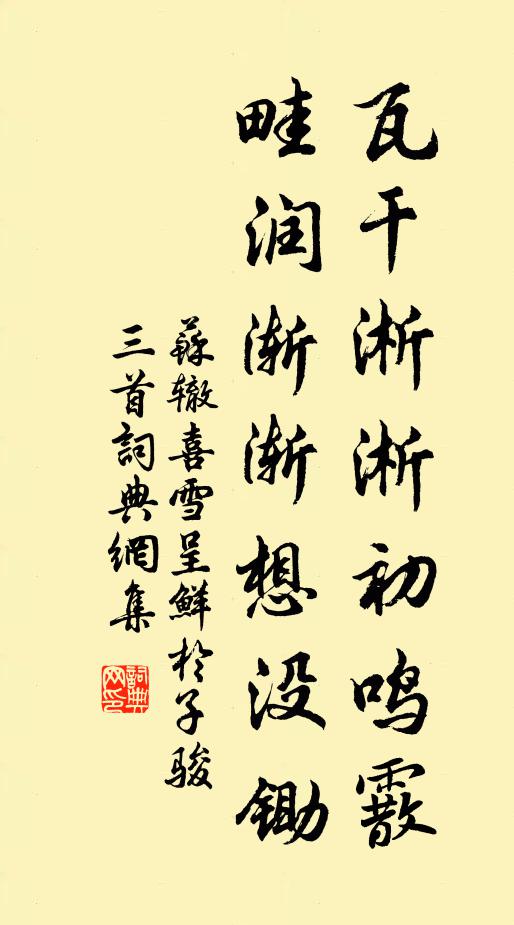 瓦干淅淅初鸣霰
畦润渐渐想没锄
蘇辙喜雪呈鮮於子骏
三首詞典網集
詞典
网印